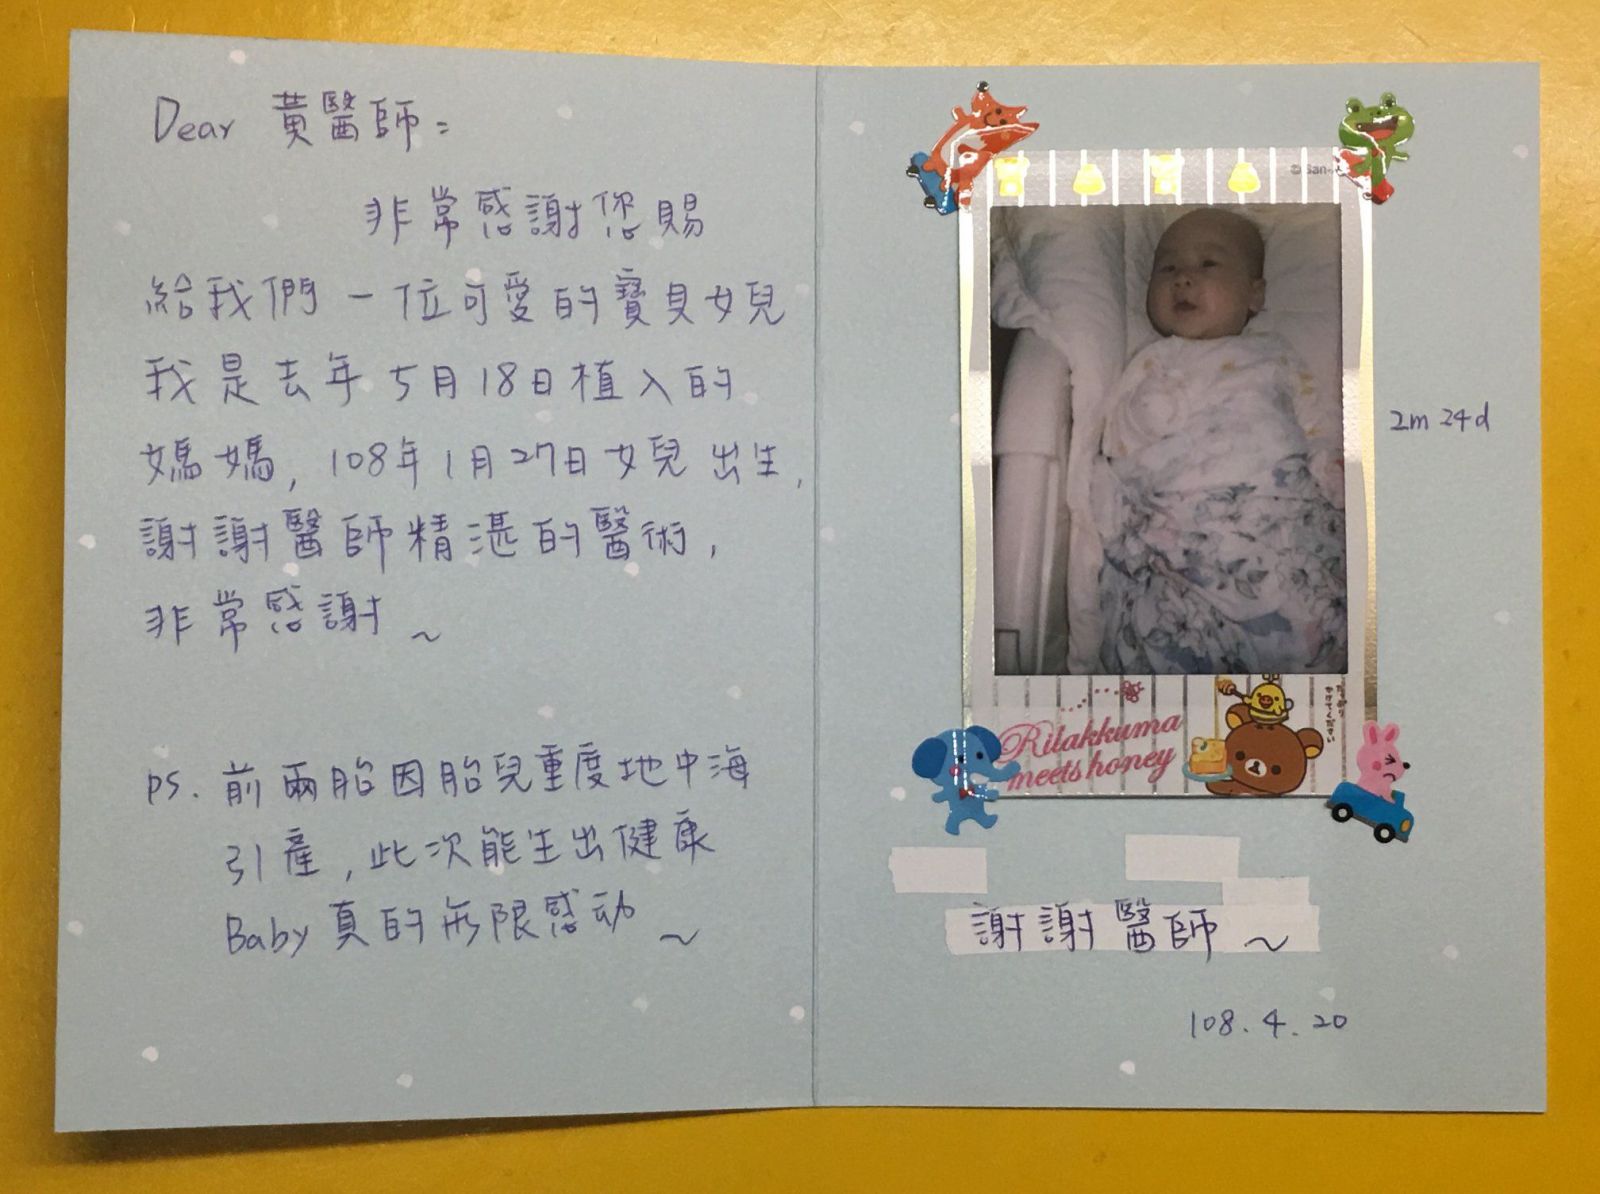 Dear 黃醫師：
非常感謝您賜
給我們一位可愛的寶貝女兒
我是去年5月18日植入的
媽媽，108年1月27日女兒出生，
謝謝醫師精湛的醫術，
非常感謝～
ps. 前兩胎因胎兒重度地中海
引產，此次能生出健康
Baby真的無限感动～
©San-
Rilakkuma
meets honey
2m 24d
謝謝醫師～
108.4.20